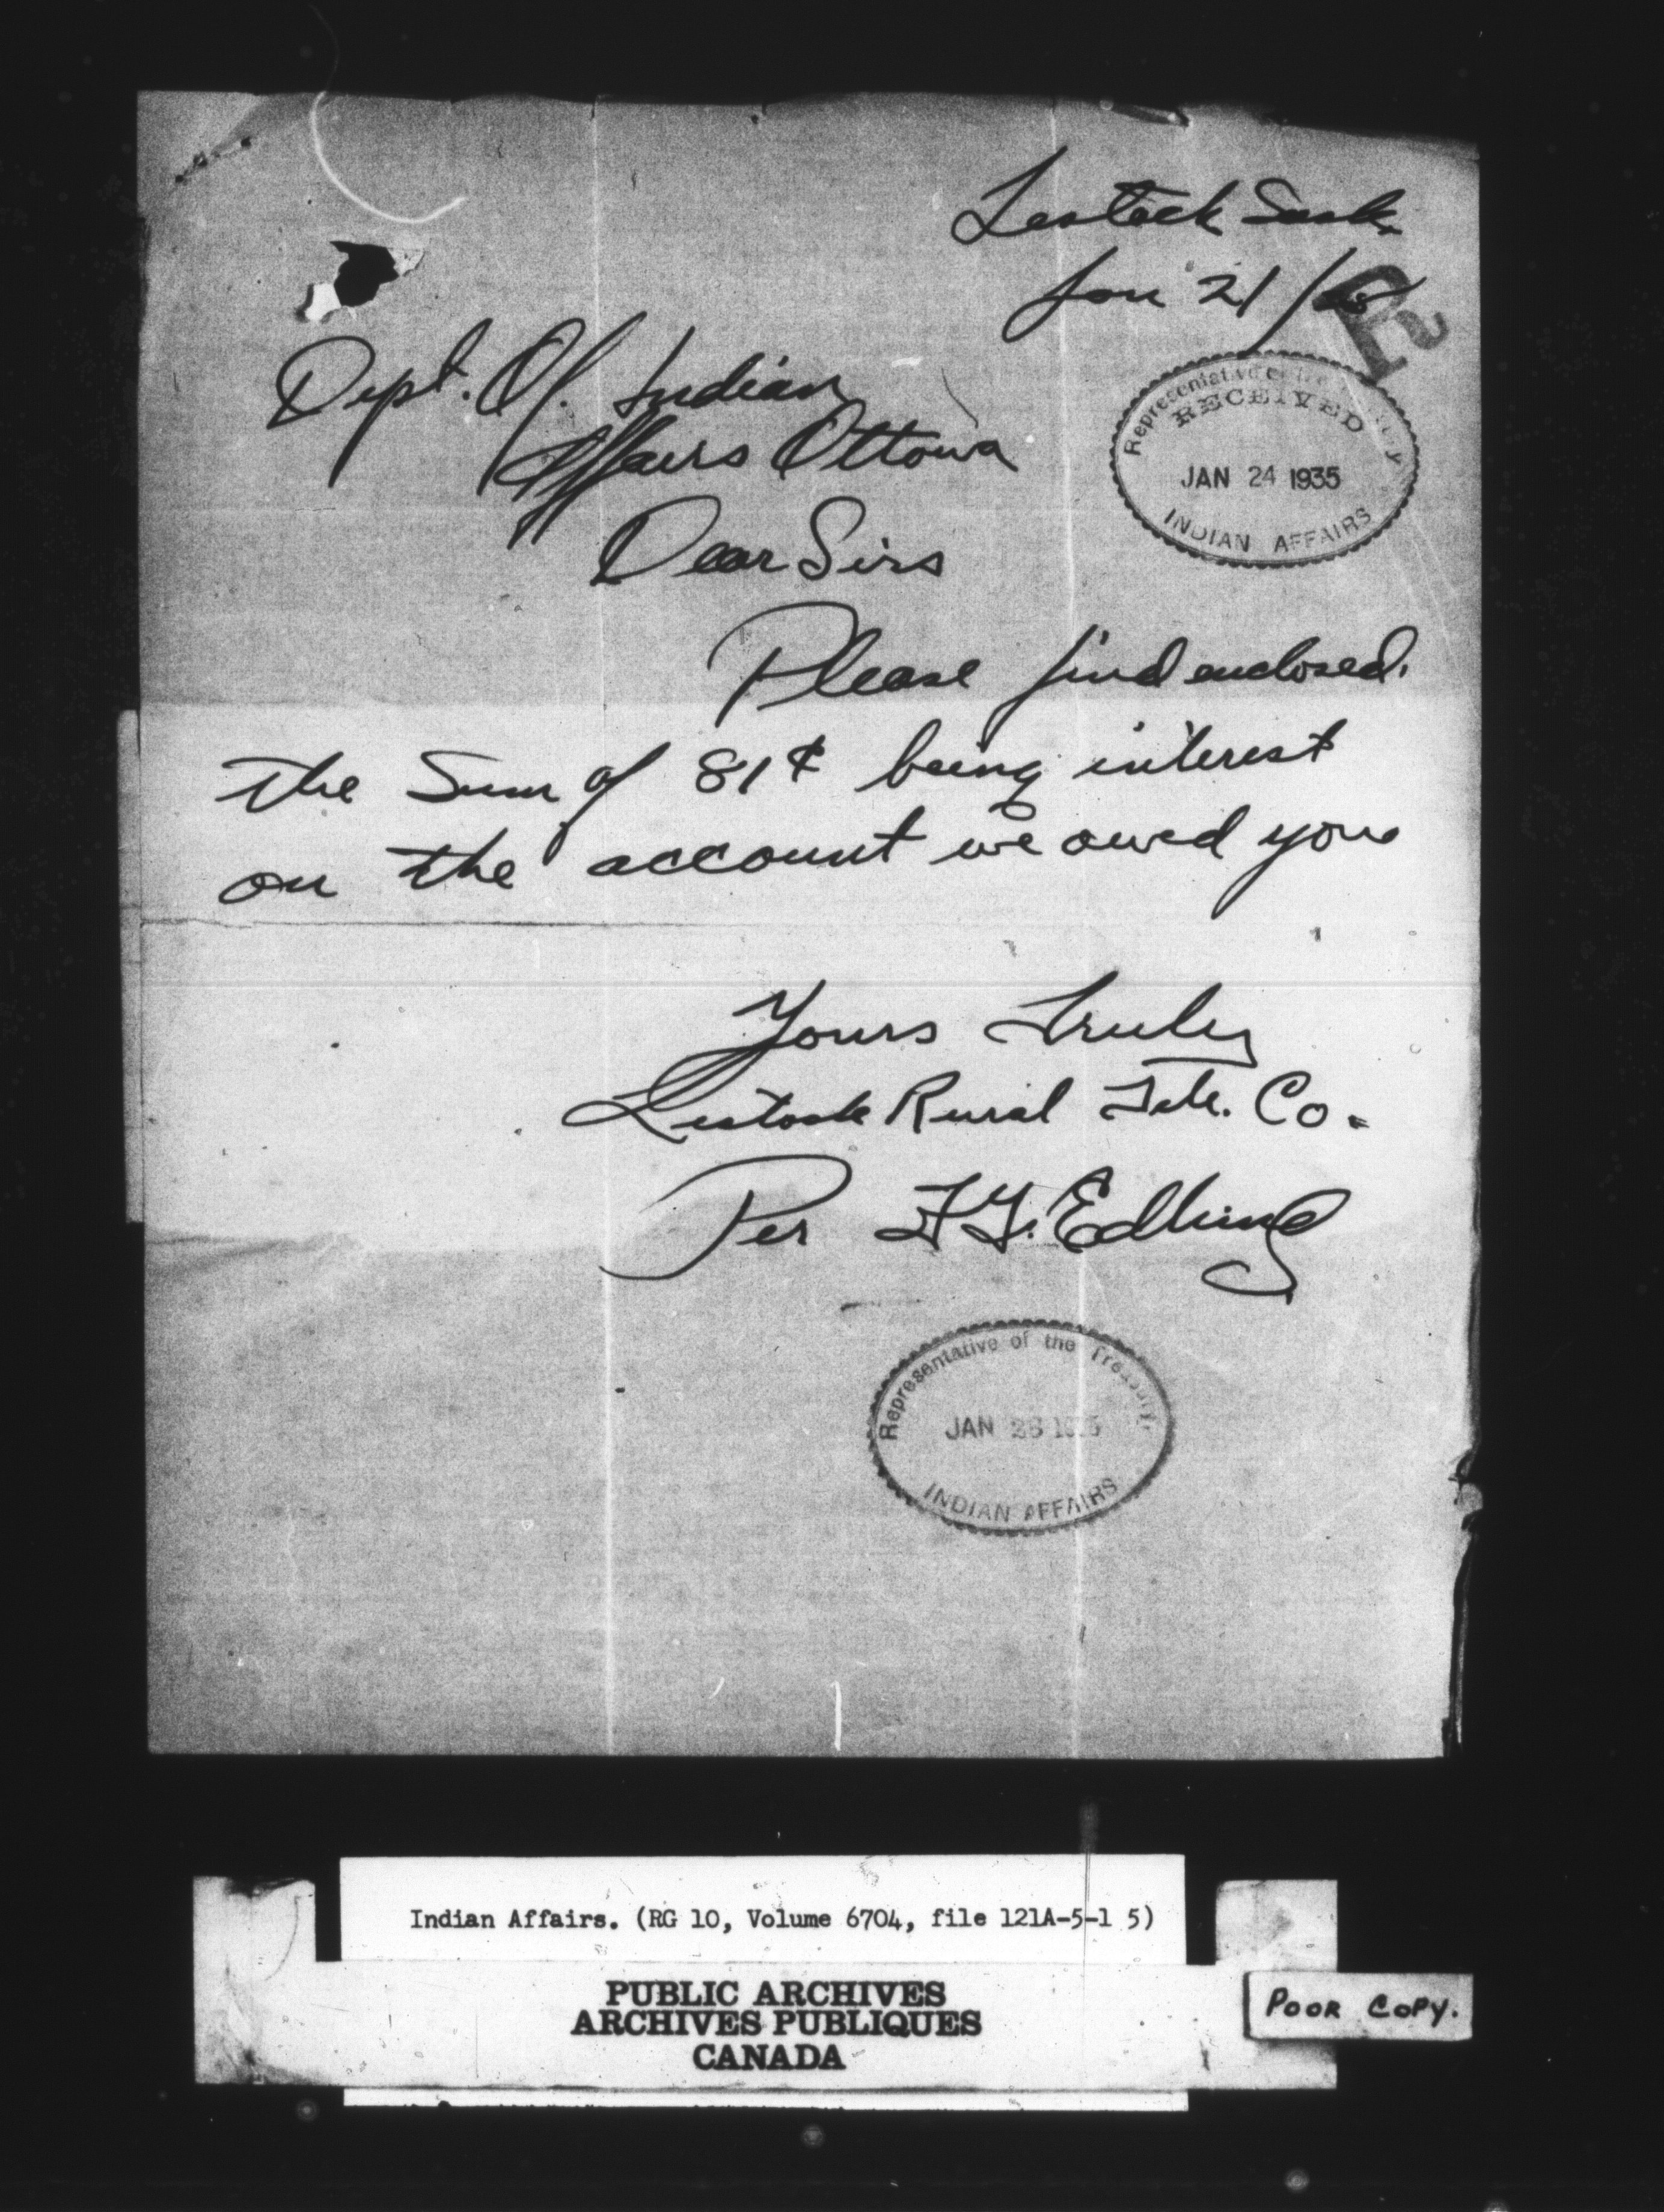 Lestock Sask.
Jan 21/35
R
Dept. Of. Indian
Affairs Ottowa
Representative of the Treasury
RECEIVED
JAN 24 1935
INDIAN AFFAIRS
Dear Sirs
Please find enclosed.
the Sum of 81¢ being interest
on the account we owed you
Yours Truly
Lestock Rural Tele. Co.
Per F.G. Edling
Representative of the Treasury
JAN 26 1935
INDIAN AFFAIRS
Indian Affairs. (RG 10, Volume 6704, file 121A-5-1 5)
PUBLIC ARCHIVES
ARCHIVES PUBLIQUES
CANADA
POOR COPY.